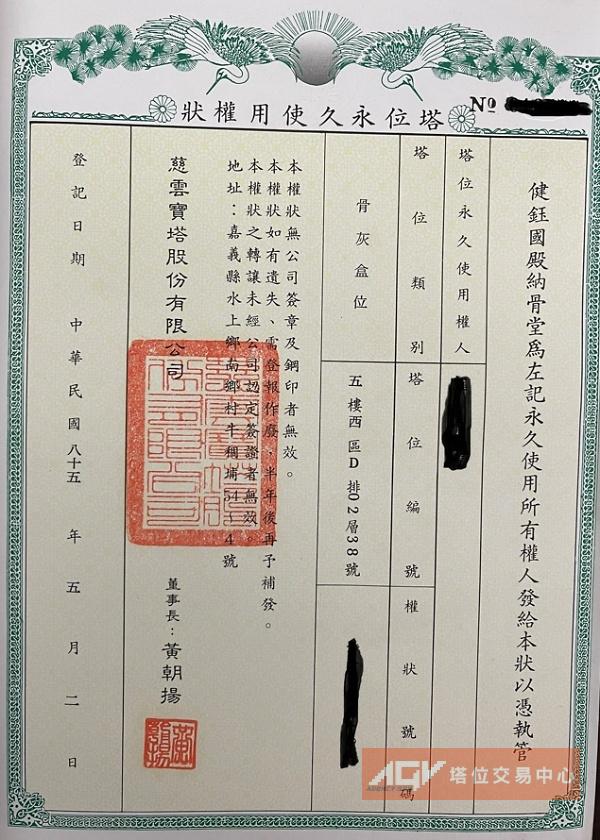 塔位永久使用權狀
№
健鈺國殿納骨堂為左記永久使用所有權人發給本狀以憑執管
塔位永久使用權人
塔位類別
塔位編號
權狀號碼
骨灰盒位
五樓西區D排02層38號
本權狀無公司簽章及鋼印者無效。
本權狀如有遺失、需登報作廢、半年後再予補發。
本權狀之轉讓未經公司認定簽證者無效。
地址：嘉義縣水上鄉南鄉村牛稠埔54-4號
慈雲寶塔股份有限公司
董事長：黃朝揚
登記日期 中華民國八十五年五月二日
AGV 塔位交易中心